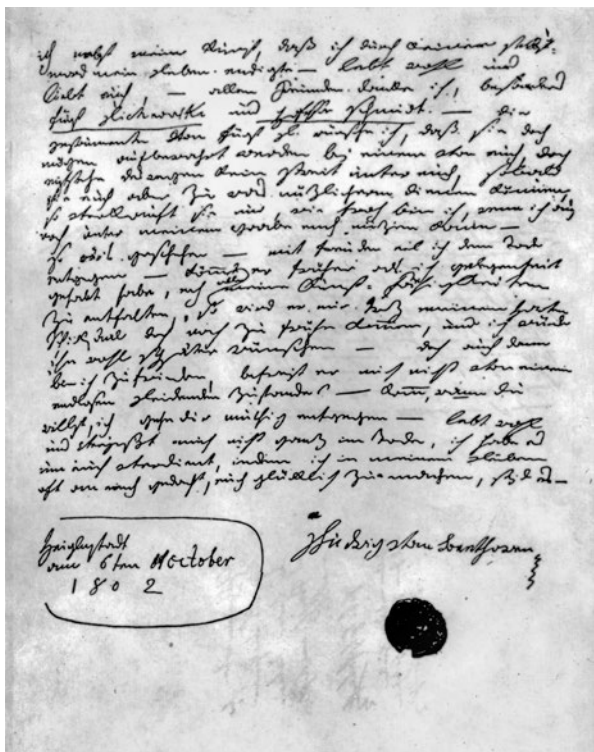 ich nebst meiner Kunst, daß ich durch keinen selbst-
mord mein Leben endigte — lebt wohl und
liebt euch — allen Freunden danke ich, besonders
fürst Lichnowski und professor schmidt. — die
Instrumente von fürst L. wünsche ich, daß sie doch
mögen aufbewahrt werden bej einem von euch, doch
entstehe deswegen kein streit unter euch, sobald
sie euch aber zu was nüzlicherm dienen können,
so verkauft sie nur, wie froh bin ich, wenn ich auch
noch unter meinem grabe euch nüzen kann —
so wärs geschehen — mit freuden eil ich dem Tode
entgegen — kömmt er früher als ich gelegenheit
gehabt habe, noch alle meine Kunst-Fähigkeiten
zu entfalten, so wird er mir troz meinem harten
Schicksal doch noch zu frühe kommen, und ich würde
ihn wohl später wünschen — doch auch dann
bin ich zufrieden, befreit er mich nicht von einem
endlosen leidenden Zustande? — komm, wann du
willst, ich gehe dir muthig entgegen — lebt wohl
und vergeßt mich nicht ganz im Tode, ich habe es
um euch verdient, indem ich in meinem Leben
oft an euch gedacht, euch glücklich zu machen, sejd es —
Heiglnstadt
am 6ten october
1802
Ludwig van Beethoven